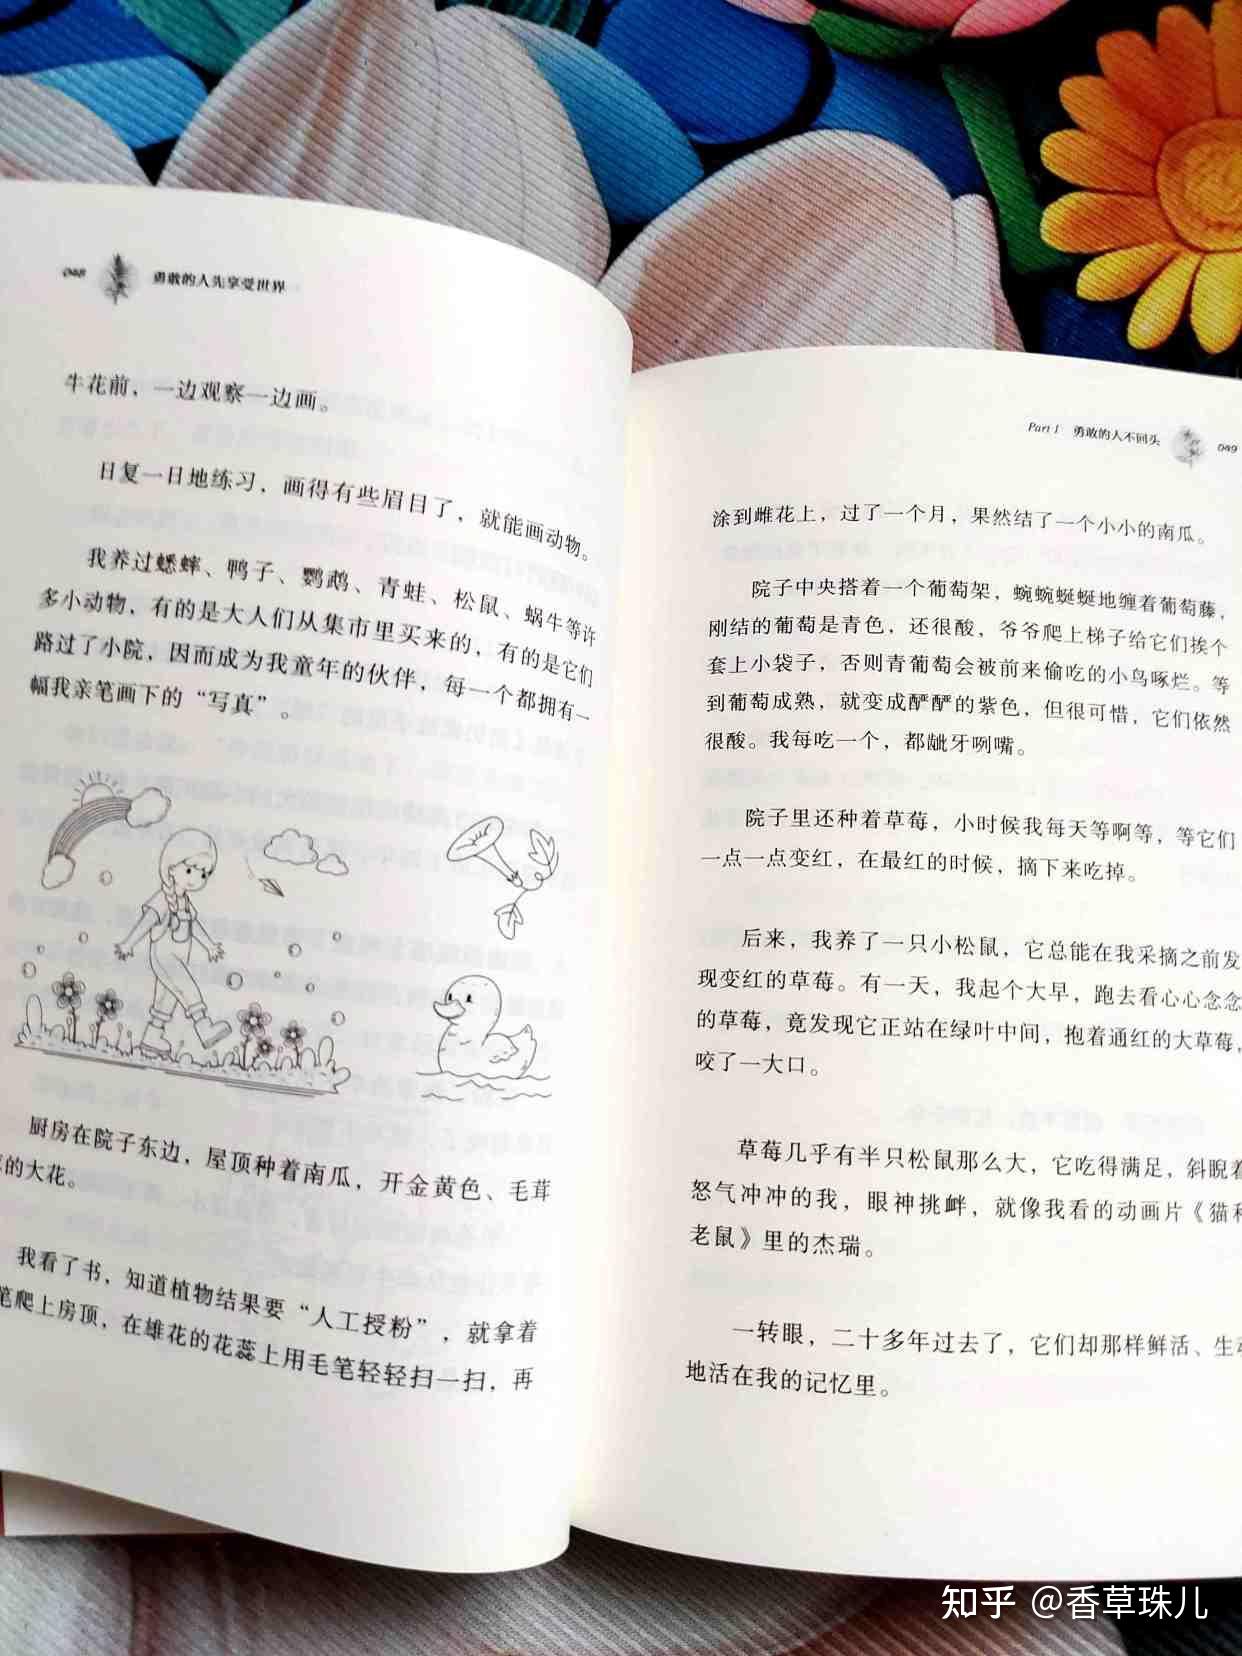 048 勇敢的人先享受世界
牛花前，一边观察一边画。
日复一日地练习，画得有些眉目了，就能画动物。
我养过蟋蟀、鸭子、鹦鹉、青蛙、松鼠、蜗牛等许
多小动物，有的是大人们从集市里买来的，有的是它们
路过了小院，因而成为我童年的伙伴，每一个都拥有一
幅我亲笔画下的“写真”。
厨房在院子东边，屋顶种着南瓜，开金黄色、毛茸
的大花。
我看了书，知道植物结果要“人工授粉”，就拿着
笔爬上房顶，在雄花的花蕊上用毛笔轻轻扫一扫，再
Part 1 勇敢的人不回头 049
涂到雌花上，过了一个月，果然结了一个小小的南瓜。
院子中央搭着一个葡萄架，蜿蜿蜒蜒地缠着葡萄藤，
刚结的葡萄是青色，还很酸，爷爷爬上梯子给它们挨个
套上小袋子，否则青葡萄会被前来偷吃的小鸟啄烂。等
到葡萄成熟，就变成酽酽的紫色，但很可惜，它们依然
很酸。我每吃一个，都龇牙咧嘴。
院子里还种着草莓，小时候我每天等啊等，等它们
一点一点变红，在最红的时候，摘下来吃掉。
后来，我养了一只小松鼠，它总能在我采摘之前发
现变红的草莓。有一天，我起个大早，跑去看心心念念
的草莓，竟发现它正站在绿叶中间，抱着通红的大草莓，
咬了一大口。
草莓几乎有半只松鼠那么大，它吃得满足，斜睨着
怒气冲冲的我，眼神挑衅，就像我看的动画片《猫和
老鼠》里的杰瑞。
一转眼，二十多年过去了，它们却那样鲜活、生动
地活在我的记忆里。
知乎 @香草珠儿